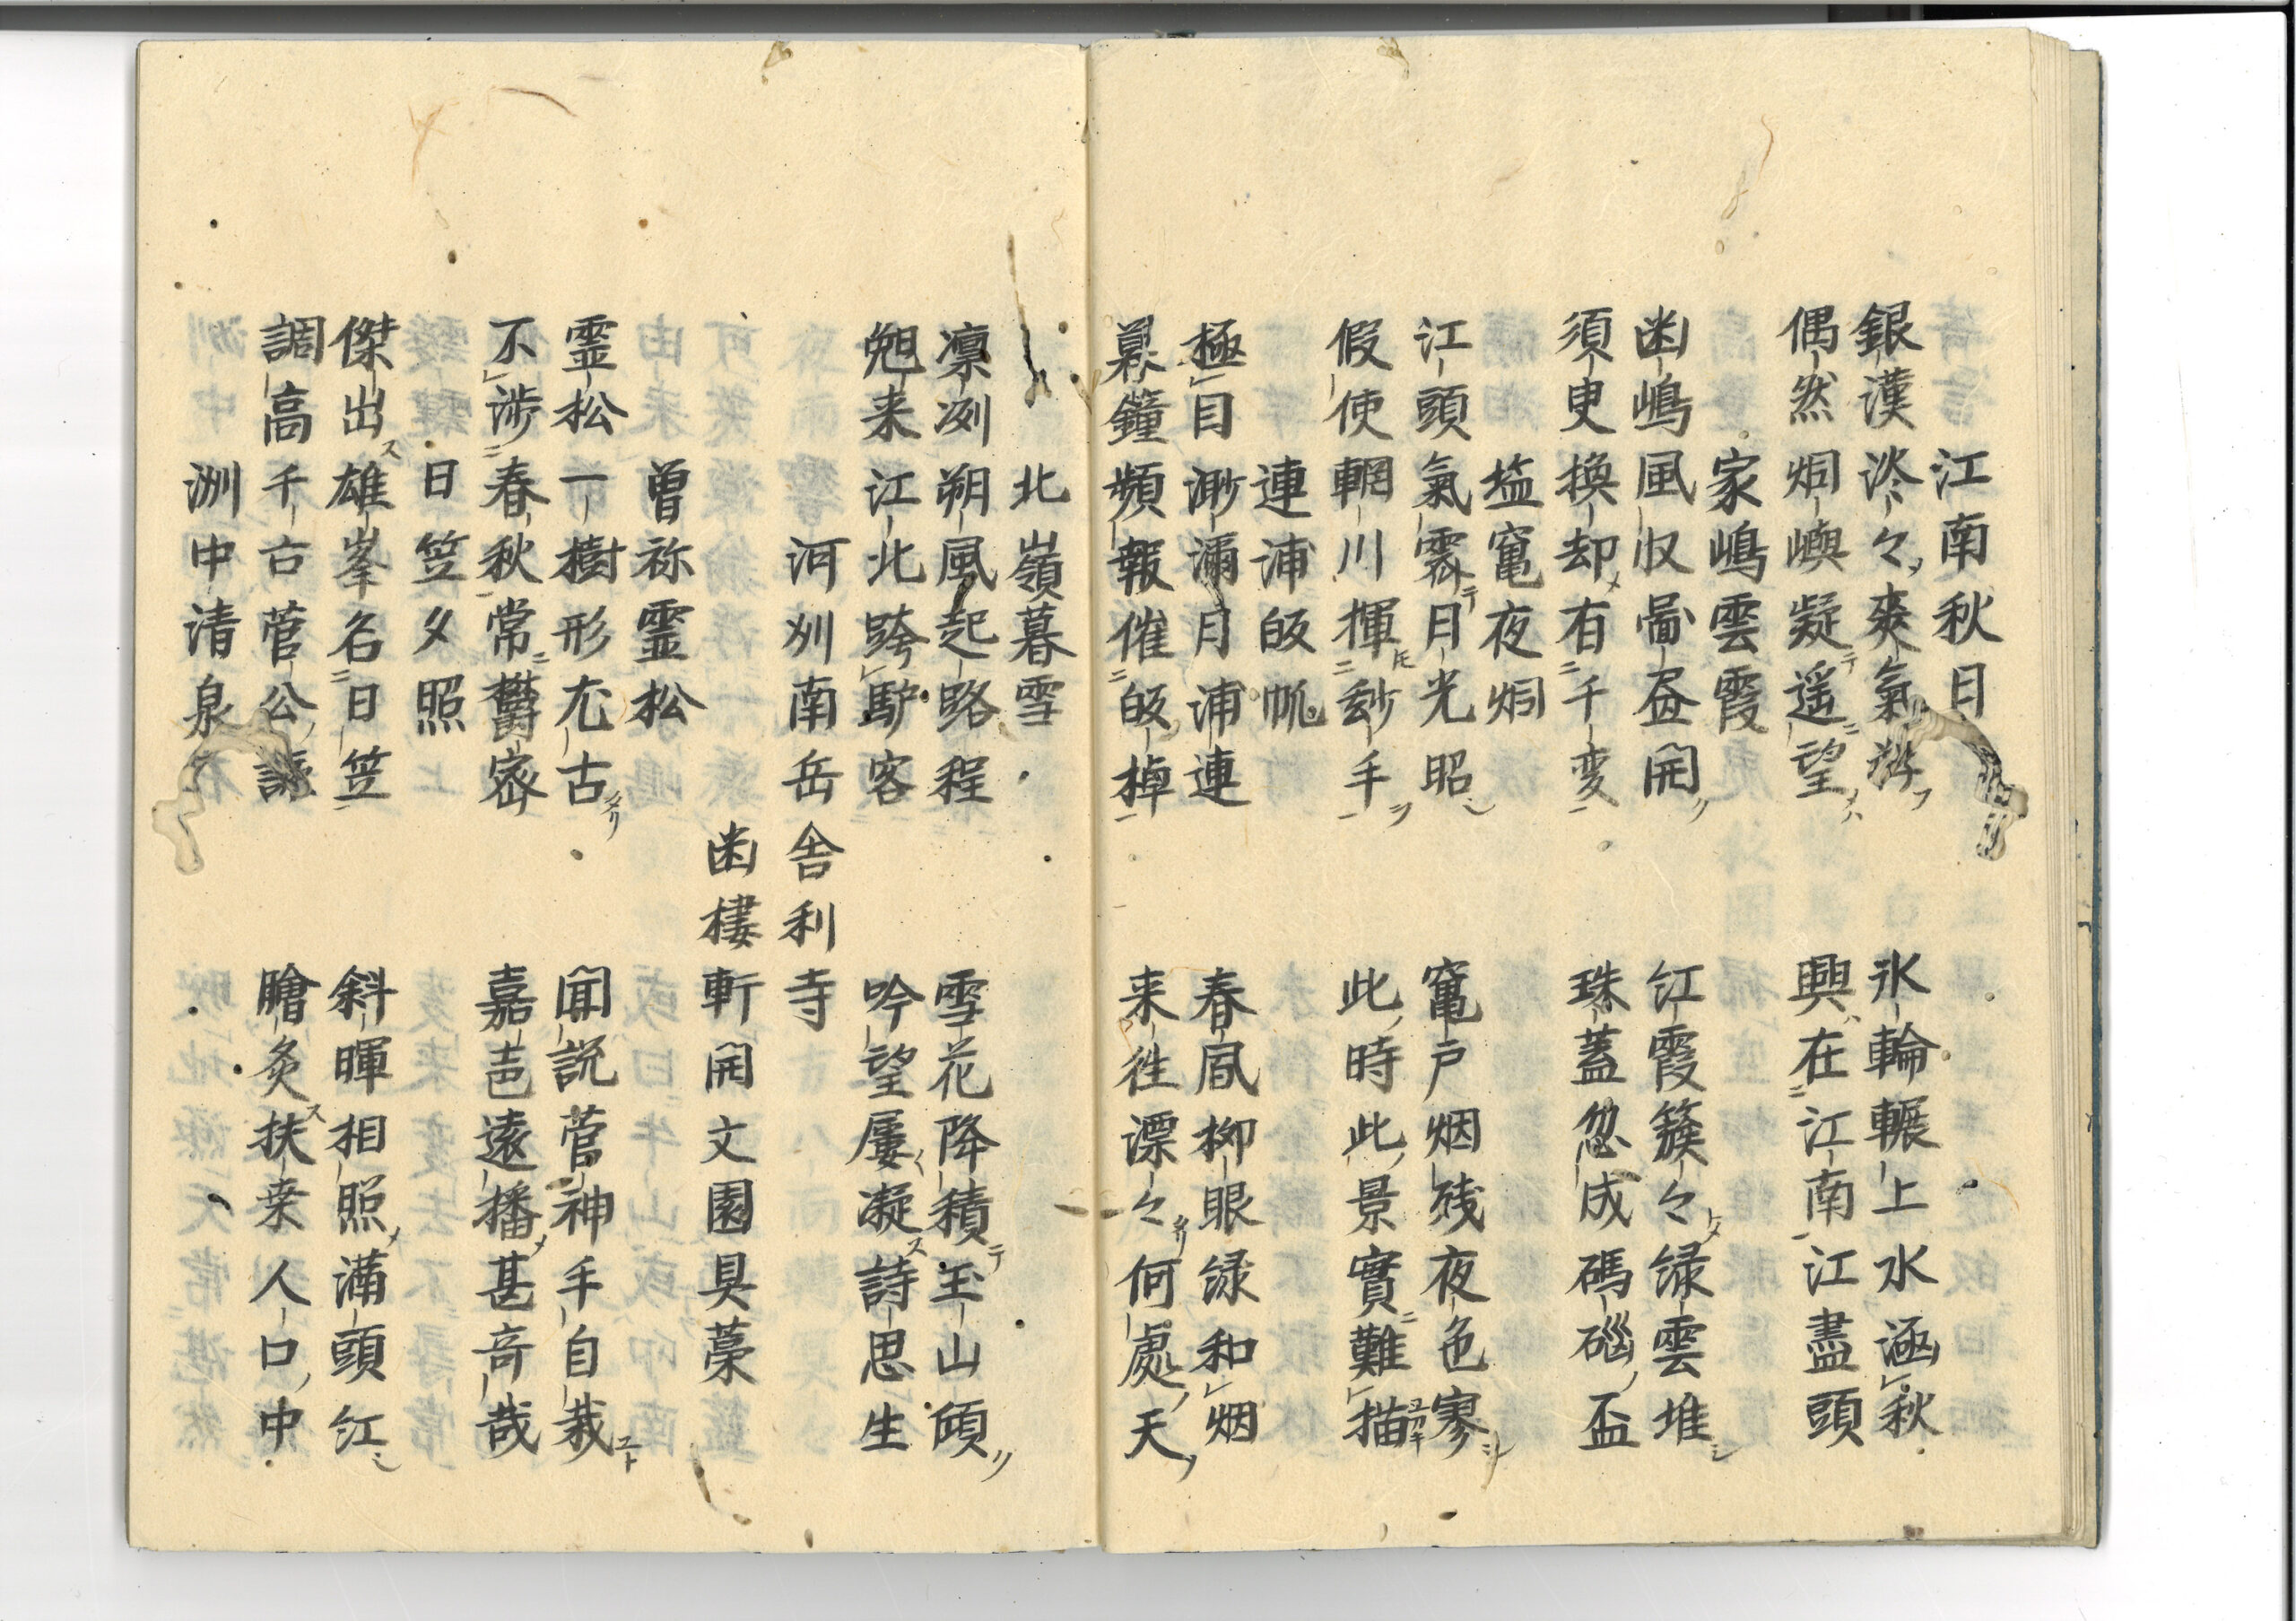 江南秋日
銀漢淡々爽氣浮 氷輪輾上水涵秋
偶然炯嶼凝遥望 興在江南江盡頭
家嶋雲霞
凾嶋風収畳昼開 紅霞簇々緑雲堆
須臾換却有千変 珠蓋忽成碼碯盃
塩竃夜炯
江頭氣霽月光昭 竃戸烟残夜色寥
假使輞川揮玅手 此時此景實難描
連浦皈帆
極目渺瀰月浦連 春凨柳眼緑和烟
暮鐘頻報催皈棹 来往漂々何處天
北嶺暮雪
凛冽朔風起路程 雪花降積玉山頃
兙来江北跨馿客 吟望屢凝詩思生
河州南岳舎利寺
凾棲軒開文園具藁
曽祢霊松
霊松一樹形尤古 聞説菅神手自栽
不渉春秋常欝密 嘉声遠播甚竒哉
日笠夕照
傑出雄峯名日笠 斜暉相照満頭紅
調高千古菅公詠 膾炙扶桒人口中
洲中清泉